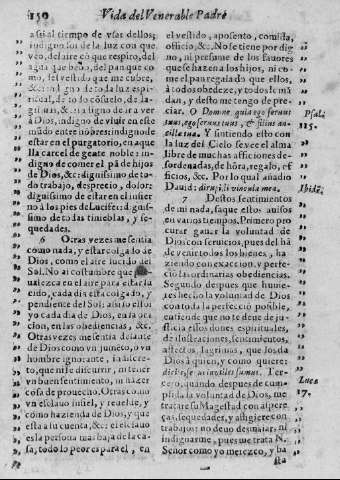 150 Vida del Venerable Padre
assi al tiempo de vsar dellos;
indigno los de la luz con que
veo, del aire que respiro, del
agua que bebo, del pan que
como, del vestido que me cubre,
&c. indigno de toda luz espiritual,
de todo cõsuelo, de la
&c. indigno de orar a
Dios, indigno de viuir en este
mũdo entre hõbres: indigno de
estar en el purgatorio, en aquella
carcel de gente noble: indigno
de comer el pã de hijos
de Dios, &c: dignissimo de todo
trabajo, desprecio, dolor:
dignissimo de estar en el infierno
à los pies de Lucifer: dignissimo
de todas tinieblas, y sequedades.
6 Otras vezes me sentia
como nada, y estar colgado de
Dios, como el aire lucido del
Sol. No ai costumbre que
en el aire para estar lucido,
cada dia està colgado, y
pendiente del Sol: assi lo estoi
yo cada dia de Dios, en la oracion,
en las obediencias, &c.
Otras vezes me sentia delante
de Dios como vn jumẽto, o vn
hombre ignorante, indiscreto,
que ni se discurrir, ni tener
vn buen sentimiento, ni hazer
cosa de prouecho. Otras como
vn esclauo infiel, y reuelde, y
como hazienda de Dios, y que
esta a su cuenta, &c: el esclauo
es la persona mas baja de la casa,
todo lo peor es para el, en
el vestido, aposento, comida,
officio, &c. No se tiene por digno,
ni presume de los fauores
que se hazen a los hijos, ni come
el pan regalado que ellos,
à todos obedeze, y todos le mãdan,
y desto me tengo de preciar.
O Domine quia ego seruus
tuus, ego seruus tuus, & filius ancillæ
tuæ. Y sintiendo esto con
la luz del Cielo se vee el alma
libre de muchas afficiones desordenadas,
de hõra, regalo, officios,
&c. Por lo qual añadio
Dauid: dirupisti vincula mea.
7 Destos sentimientos
de mi nada, saque estos auisos
en varios tiempos. Primero procurar
ganar la voluntad de
Dios con seruicios, pues del hà
de venir todos los bienes, haziendo
con exaccion, y perfection
las ordinarias obediencias.
Segundo despues que huuieres
hecho la voluntad de Dios
con toda la perfecciõ posible,
entiende que no te deue de justicia
essos dones espirituales,
de ilustraciones, sentimientos,
afectos, lagrimas, que los dà
Dios à quien, y como quiere:
dicite, serui inutiles sumus. Tercero,
quando despues de cumplida
la voluntad de Dios, me
tratare su Magestad con aspereza,
sequedades, y afligiere con
trabajos: no deuo de turbar, ni
indignarme, pues me trata N.
Señor como yo merezco, y basta
Psal.
115.
Ibidẽ
Luca
17.